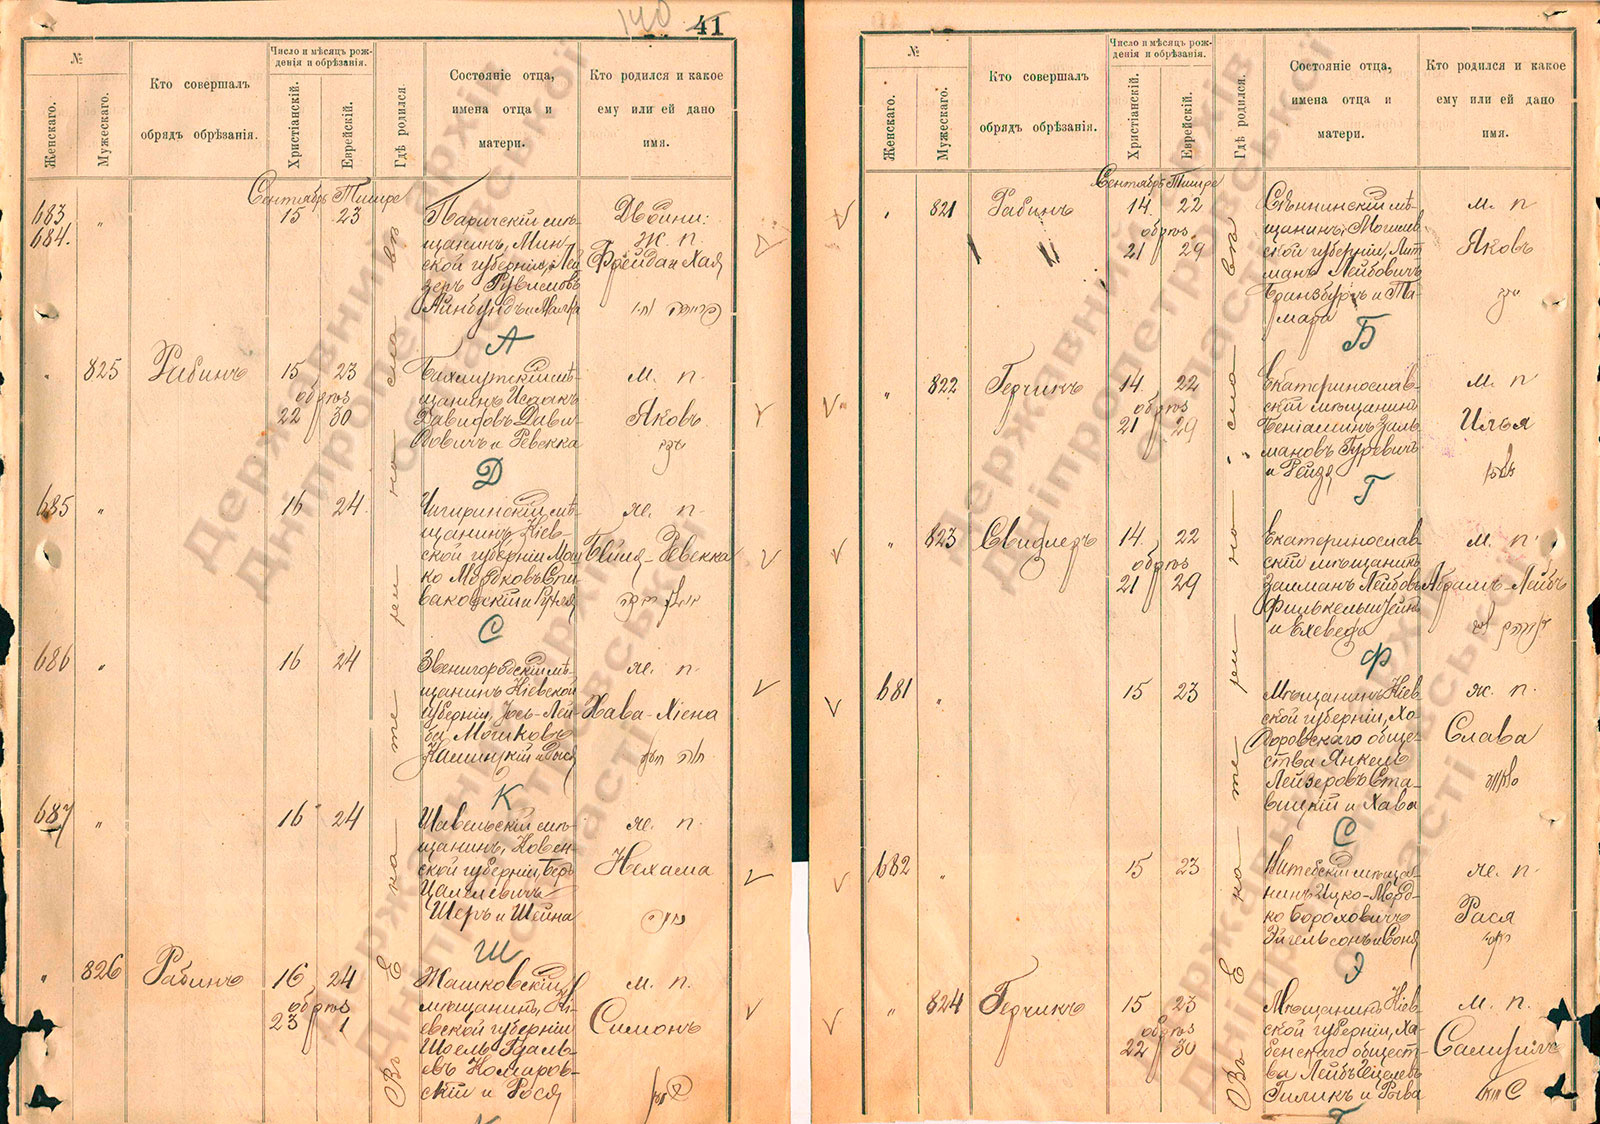 140 41
№
Женскаго.
Мужескаго.
Кто совершалъ
обрядъ обрѣзанія.
Число и мѣсяцъ рож-
денія и обрѣзанія.
Христіанскій.
Еврейскій.
Гдѣ родился.
Состояніе отца,
имена отца и
матери.
Кто родился и какое
ему или ей дано
имя.
Сентябрь Тишре
683
684.
"
15 23
Паричскій мѣ-
щанинъ, Мин-
ской губерніи, Лей
зеръ Рувимовъ
и Малка
Двойни:
Ж. п.
Фрейда и Хая
А
825
Рабинъ
15 23
обрѣз
22 30
Бахмутскій мѣ-
щанинъ Исаакъ
Давидовъ Дави-
довичъ и Ревекка
м. п.
Яковъ
יעקב
Д
685
"
16 24
Чигиринскій мѣ-
щанинъ, Кіев-
ской губерніи Мош
ко Мордковъ Спи-
ваковскій и Рухля
ж. п.
Бейля-Ревекка
С
686
"
16 24
Звенигородскій мѣ-
щанинъ Кіевской
губерніи, Іось-Лей-
ба Мошковъ
ж. п.
Хава-Хіена
К
687
"
16 24
Шавельскій мѣ-
щанинъ, Ковен-
ской губерніи, Беръ
Шеръ и Шейна
ж. п.
Нехама
Ш
"
826
Рабинъ
16 24
обрѣз
23 1
Жашковскій
мѣщанинъ, Кі-
евской губерніи
Комаров-
скій и Рося
м. п.
Симонъ
Въ Екатеринославѣ
№
Женскаго.
Мужескаго.
Кто совершалъ
обрядъ обрѣзанія.
Число и мѣсяцъ рож-
денія и обрѣзанія.
Христіанскій.
Еврейскій.
Гдѣ родился.
Состояніе отца,
имена отца и
матери.
Кто родился и какое
ему или ей дано
имя.
Сентябрь Тишре
821
Рабинъ
14. 22
обрѣз
21 29
Сѣннинскій мѣ-
щанинъ, Могилев
ской губерніи, Лит
манъ Лейбовичъ
Гринзбургъ и Та-
мара
м. п
Яковъ
יעקב
Б
822
Герчикъ
14. 22
обрѣз
21 29
Екатеринослав-
скій мѣщанинъ
Беніаминъ Заль-
мановъ Гуревичъ
и Рейзя
м. п
Илья
Г
"
823
Свидлеръ
14. 22
обрѣз
21 29
Екатеринослав
скій мѣщанинъ
Залманъ Лейбовъ
и Ехеведъ
м. п.
Абрамъ-Лейбъ
Ф
681
"
15 23
Мѣщанинъ Кіев
ской губерніи, Хо-
доровскаго обще-
ства Янкель
Лейзеровъ Ста-
вицкій и Хава
ж. п.
Слава
С
682
"
15 23
Витебскій мѣща-
нинъ Ицко-Морд-
ко Бороховичъ
Эйгельсонъ и Соня
ж. п.
Рася
Э
"
824
Герчикъ
15 23
обрѣз
22 30
Мѣщанинъ Кіев-
ской губерніи, Ха-
бенскаго общест-
ва Лейбъ
Гиликъ и Рогва
м. п.
Въ Екатеринославѣ
Державний архів
Дніпропетровської
області